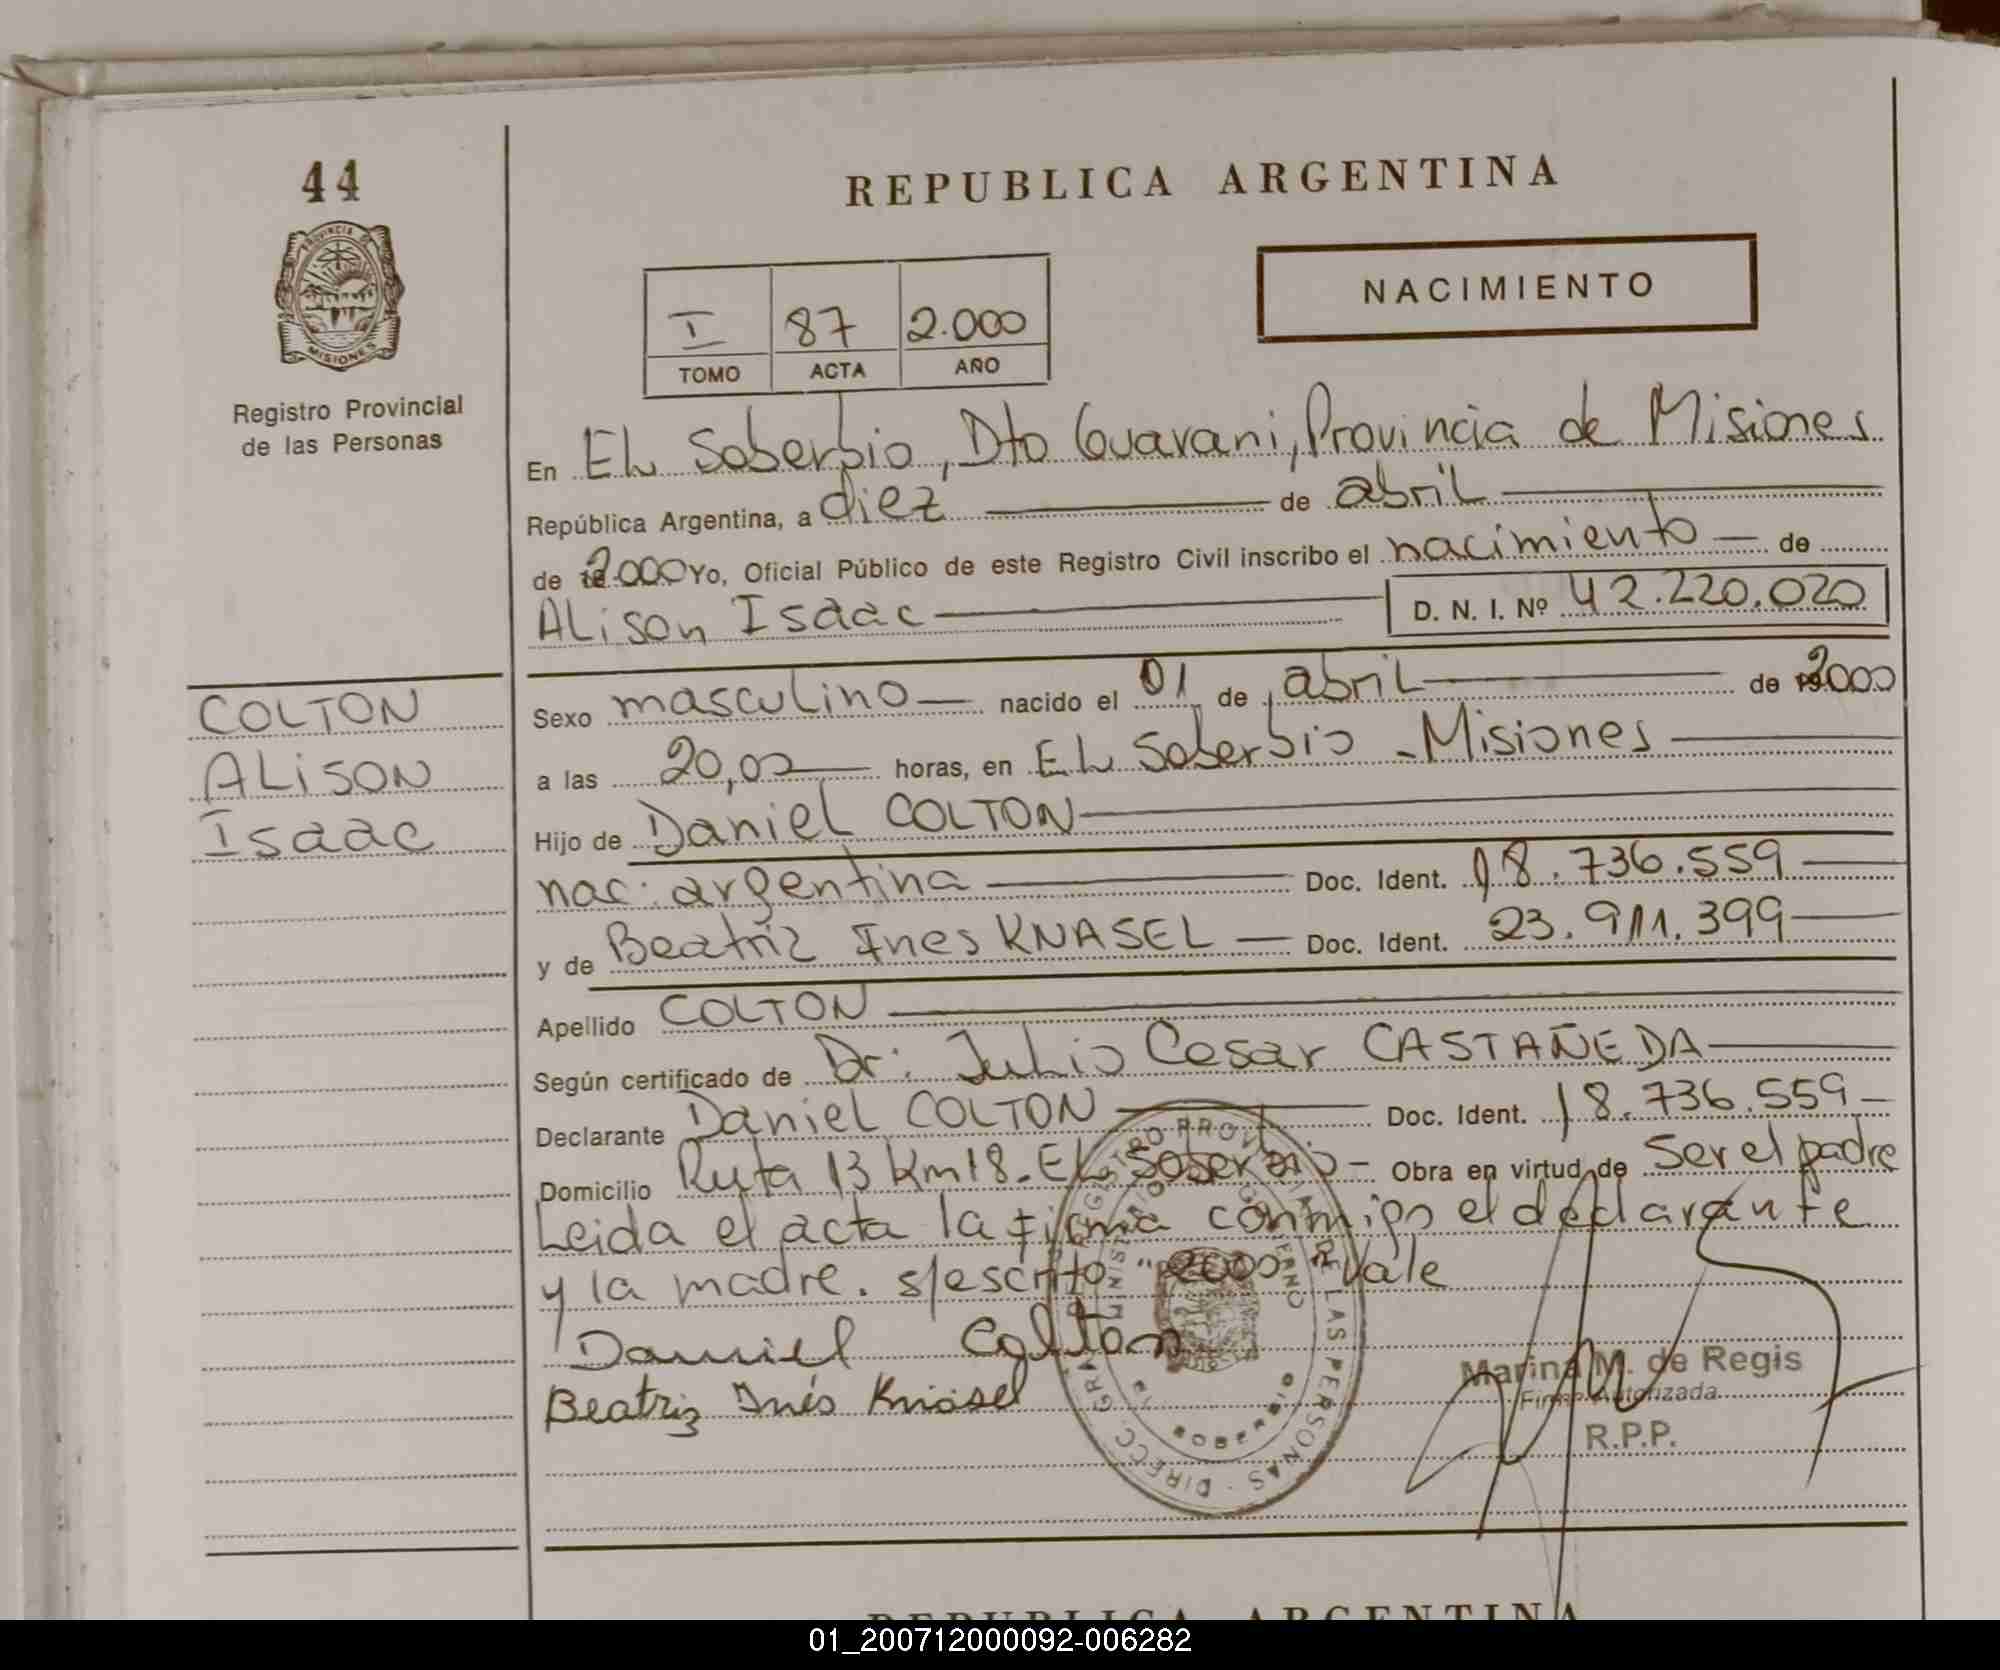 44
PROVINCIA DE
MISIONES
Registro Provincial
de las Personas
REPUBLICA ARGENTINA
I 87 2.000
TOMO ACTA AÑO
NACIMIENTO
En EL Soberbio, Dto Guarani, Provincia de Misiones
República Argentina, a diez de abril
de 2.000 Yo, Oficial Público de este Registro Civil inscribo el nacimiento de
ALison Isaac D. N. I. Nº 42.220.020
COLTON
ALiSON
Isaac
Sexo masculino nacido el 01 de abril de 2000
a las 20,00 horas, en EL Soberbio - Misiones
Hijo de Daniel COLTON
nac: argentina Doc. Ident. 18.736.559
y de Beatriz Ines KNASEL Doc. Ident. 23.911.399
Apellido COLTON
Según certificado de Dr: Julio Cesar CASTAÑEDA
Declarante Daniel COLTON Doc. Ident. 18.736.559
Domicilio Ruta 13 Km18. EL Soberbio - Obra en virtud de ser el padre
Leida el acta la firma conmigo el declarante
y la madre. s/escrito "2000" Vale
Daniel Colton
Beatriz Inés Knasel
Marina M. de Regis
Firma Autorizada
R.P.P.
DIRECC. GRAL. REGISTRO PROVINCIAL DE LAS PERSONAS
MINISTERIO DE GOBIERNO
EL SOBERBIO
REPUBLICA ARGENTINA
01_200712000092-006282